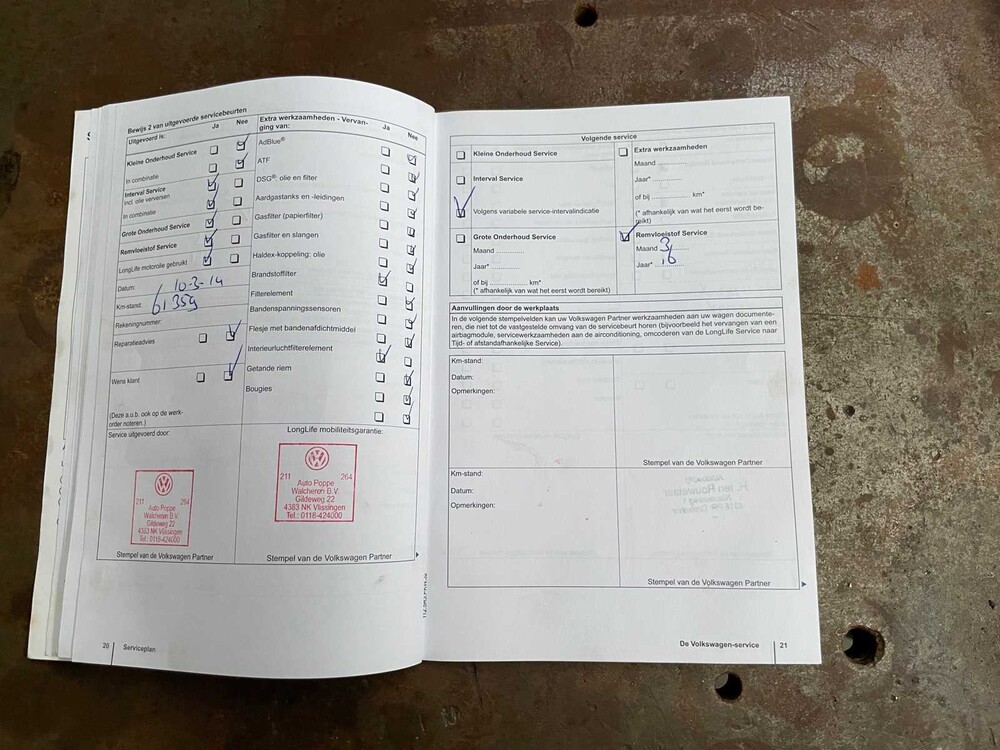 Bewijs 2 van uitgevoerde servicebeurten
Uitgevoerd is:
Ja
Nee
Kleine Onderhoud Service
In combinatie
Interval Service
incl. olie verversen
In combinatie
Grote Onderhoud Service
Remvloeistof Service
LongLife motorolie gebruikt
Datum: 10-3-14
Km-stand: 61359
Rekeningnummer:
Reparatieadvies
Wens klant
(Deze a.u.b. ook op de werk-
order noteren.)
Extra werkzaamheden - Vervan-
ging van:
Ja
Nee
AdBlue®
ATF
DSG®: olie en filter
Aardgastanks en -leidingen
Gasfilter (papierfilter)
Gasfilter en slangen
Haldex-koppeling: olie
Brandstoffilter
Filterelement
Bandenspanningssensoren
Flesje met bandenafdichtmiddel
Interieurluchtfilterelement
Getande riem
Bougies
Service uitgevoerd door:
211 264
Auto Poppe
Walcheren B.V.
Gildeweg 22
4383 NK Vlissingen
Tel.: 0118-424000
Stempel van de Volkswagen Partner
LongLife mobiliteitsgarantie:
211 264
Auto Poppe
Walcheren B.V.
Gildeweg 22
4383 NK Vlissingen
Tel.: 0118-424000
Stempel van de Volkswagen Partner
20 Serviceplan
Volgende service
Kleine Onderhoud Service
Interval Service
Volgens variabele service-intervalindicatie
Grote Onderhoud Service
Maand ............
Jaar* ............
of bij ............ km*
(* afhankelijk van wat het eerst wordt bereikt)
Extra werkzaamheden
Maand ............
Jaar* ............
of bij ............ km*
(* afhankelijk van wat het eerst wordt be-
reikt)
Remvloeistof Service
Maand 3
Jaar* 16
Aanvullingen door de werkplaats
In de volgende stempelvelden kan uw Volkswagen Partner werkzaamheden aan uw wagen documente-
ren, die niet tot de vastgestelde omvang van de servicebeurt horen (bijvoorbeeld het vervangen van een
airbagmodule, servicewerkzaamheden aan de airconditioning, omcoderen van de LongLife Service naar
Tijd- of afstandafhankelijke Service).
Km-stand:
Datum:
Opmerkingen:
Stempel van de Volkswagen Partner
Km-stand:
Datum:
Opmerkingen:
Stempel van de Volkswagen Partner
De Volkswagen-service 21